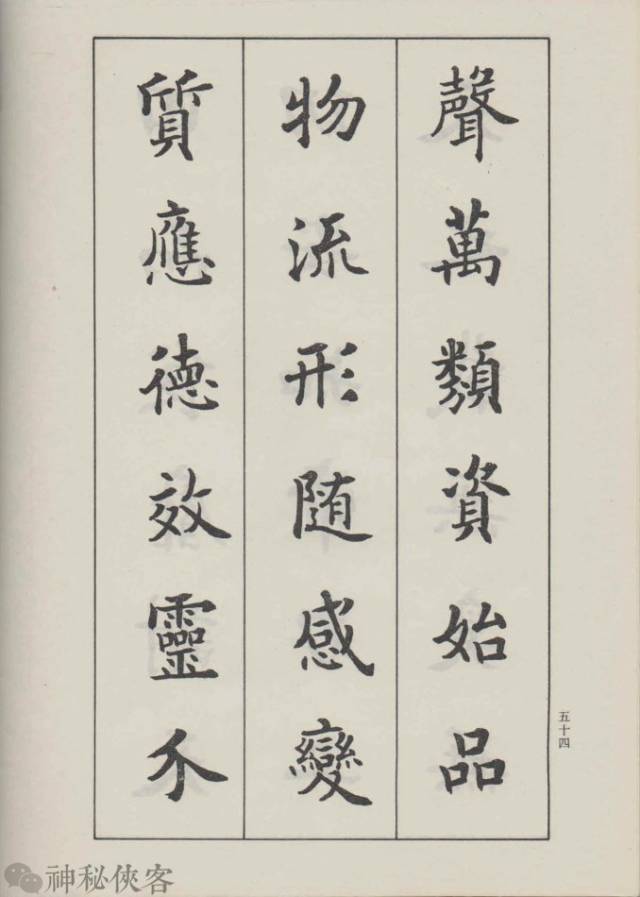 聲萬類資始品
物流形随感變
質應德效靈介
五十四
神秘俠客